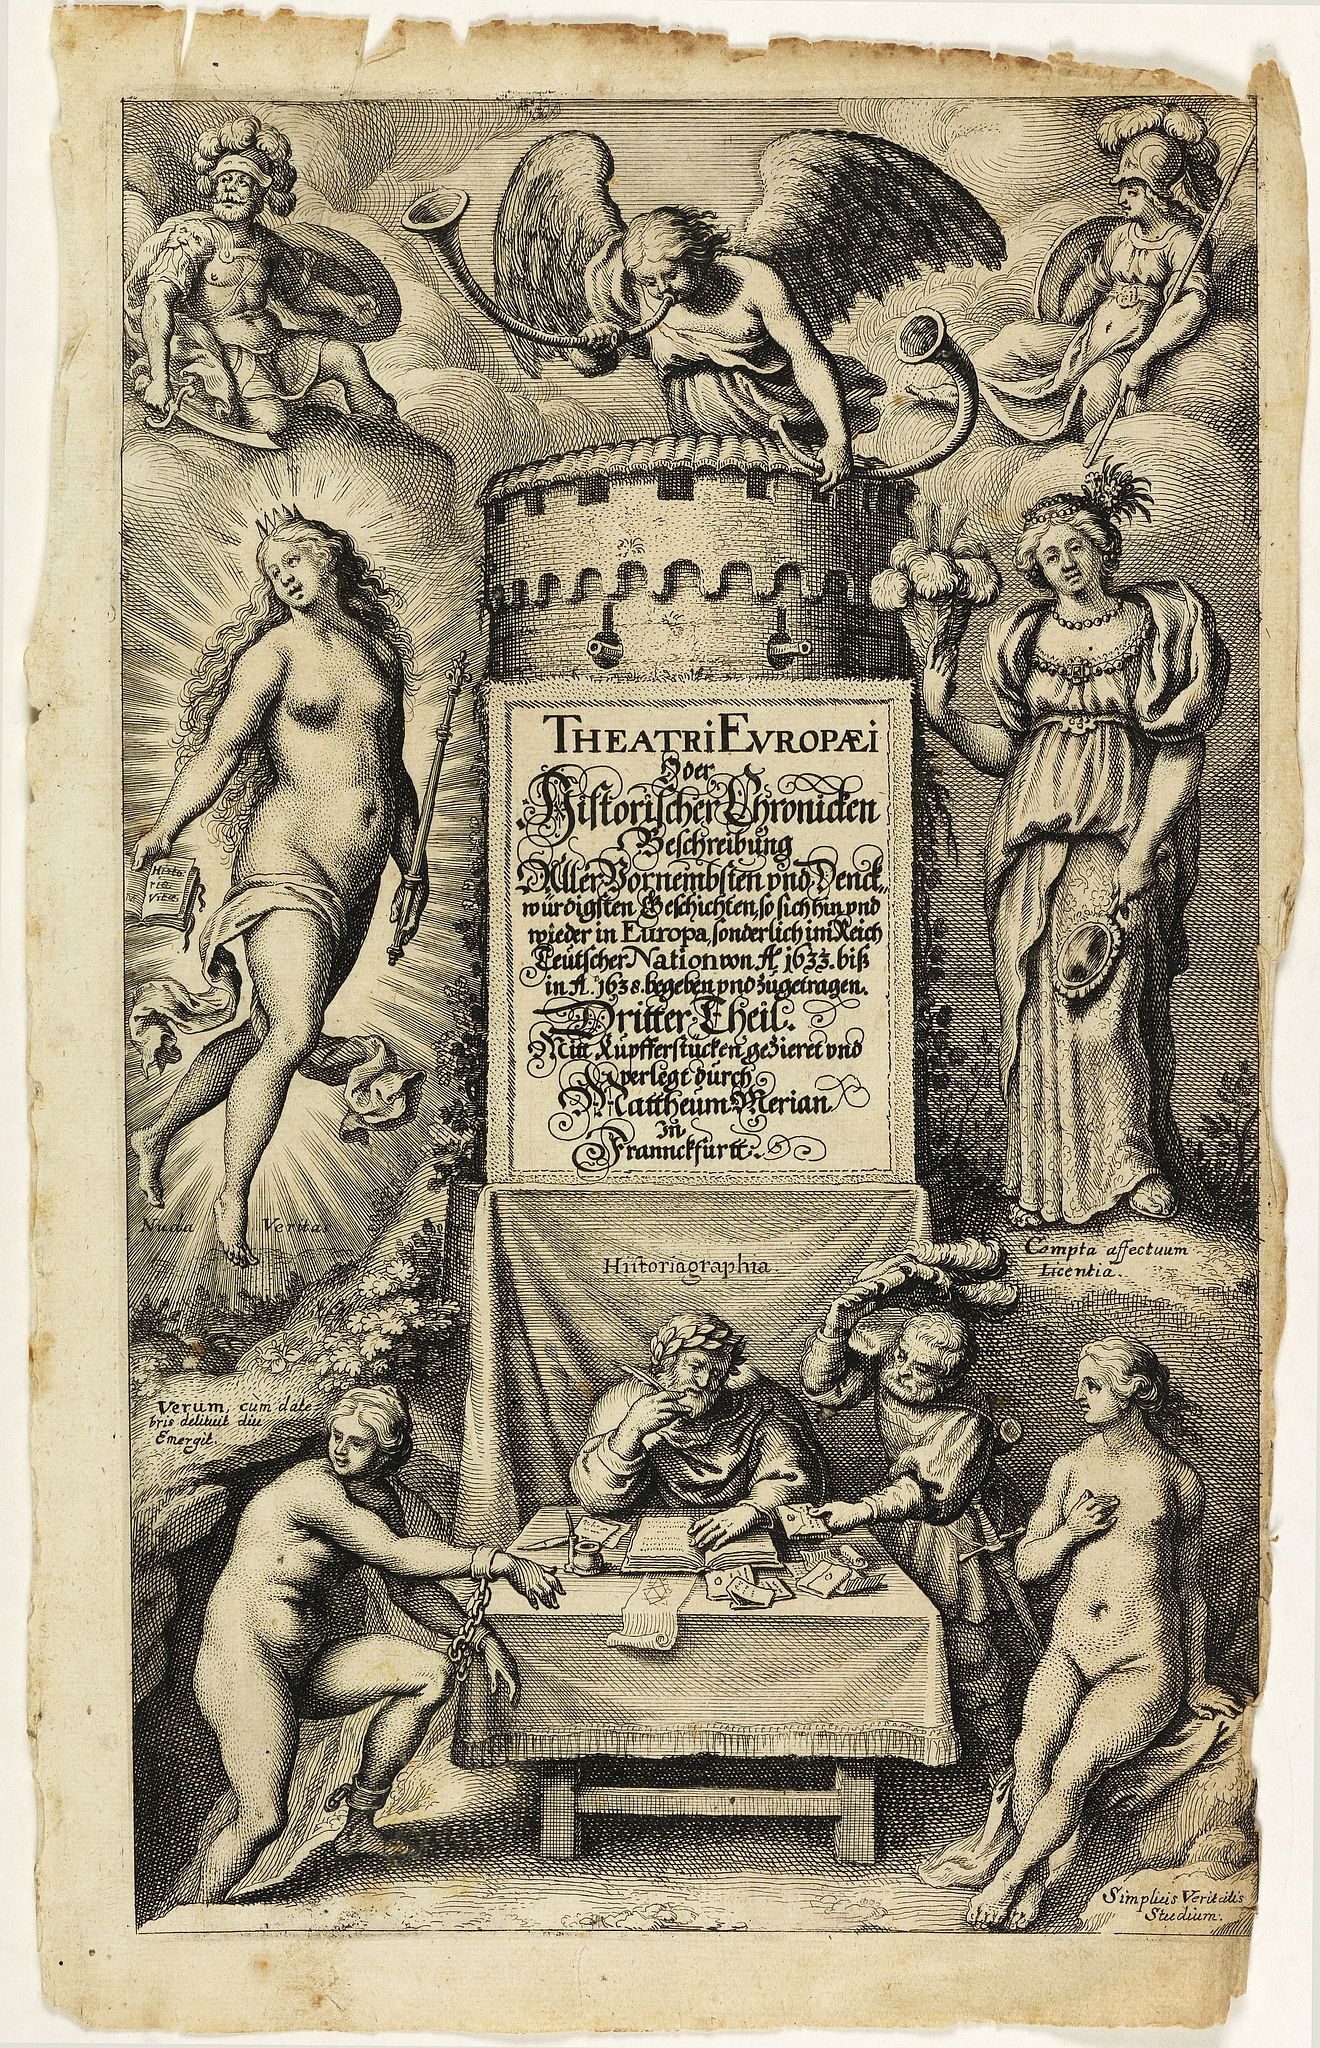 THEATRI EVROPÆI
Oder
Historischer Chronicken
Beschreibung
Aller Vornembsten vnd Denck„
würdigsten Geschichten, so sich hin vnd
wieder in Europa, sonderlich im Reich
Teutscher Nation von Aº 1633. biß
in Aº 1638. begeben vnd zugetragen.
Dritter Theil.
Mitt Kupfferstücken gezieret vnd
verlegt durch
Mattheum Merian
zu
Franckfurtt.
Histo
ria
Nuda Veritas
Compta affectuum
Licentia.
Historiagraphia.
Verum, cùm date
bris delituit diu
Emergit.
Simplicis Veritatis
Studium.